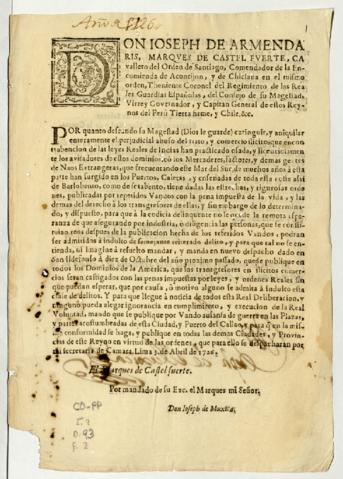 Año de 1726
DON IOSEPH DE ARMENDA
RIS, MARQUES DE CASTEL FUERTE, CA
vallero del Orden de Santiago, Comendador de la En
comienda de Aconttjon, y de Chiclana en el mismo
orden, Theniente Coronel del Regimiento de las Rea
les Guardias Españolas, del Consejo de su Magestad,
Virrey Governador, y Capitan General de estos Rey
nos del Perù Tierra firme, y Chile, &c.
POR quanto deseando su Magestad (Dios le guarde) extinguir, y aniquilar
enteramente el perjudicial abuso del trato, y comercio ilicito que en con
trabencion de las leyes Reales de Indias han practicado osada, y licenciosamen
te los avitadores de estos dominios, cõ los Mercaderes, factores, y demas gentes
de Naos Extrangeras, que frecuentando este Mar del Sur, de muchos años à esta
parte han surgido en los Puertos, Caletas y ensenadas de toda esta costa assi
de Barlobento, como de sotabento, tiene dadas las estrechas, y rigurosas ordenes
publicadas por repetidos Vandos con la pena impuesta de la vida, y las
demas del derecho à los transgresores de ellas, y sin embargo de lo determina
do, y dispuesto, para que à la codicia delinquente no le quede la remota espe
ranza de que asegurando por industria, ò diligencia las personas, que se
despues de la publicacion hecha de los referidos Vandos, podran
ser admitidos à indulto de reiterado delito, y para que tal no se en
tienda, su Magestad à resuelto mandar, y manda en nuevo despacho dado en
san Ildefonso à diez de Octubre del año proximo pasado, que se publique en
todos los Dominios de la America, que los transgresores en ilicitos comer
cios seràn castigados con las penas impuestas por leyes, y ordenes Reales sin
que puedan esperar, que por causa, ò motivo alguno se admita à indulto esta
clase de delitos. Y para que llegue à noticia de todos esta Real Deliberacion, y
ninguno pueda alegar ignorancia en cumplimiento, y execucion de la Real
Voluntad, mando que se publique por Vando à usanza de guerra en las Plazas,
y partes acostumbradas de esta Ciudad, y Puerto del Callao, para q̃ en la mis
ma conformidad se haga, y publique en todas las demas Ciudades, y Provin
cias de este Reyno en virtud de las ordenes, que para ello se despacharan por
mi secretaria de Camara. Lima 3. de Abril de 1726.
El Marques de Castelfuerte.
Por mandado de su Exc. el Marques mi Señor.
Don Joseph de Muxica,
CD-PP
D. 93
F. 2